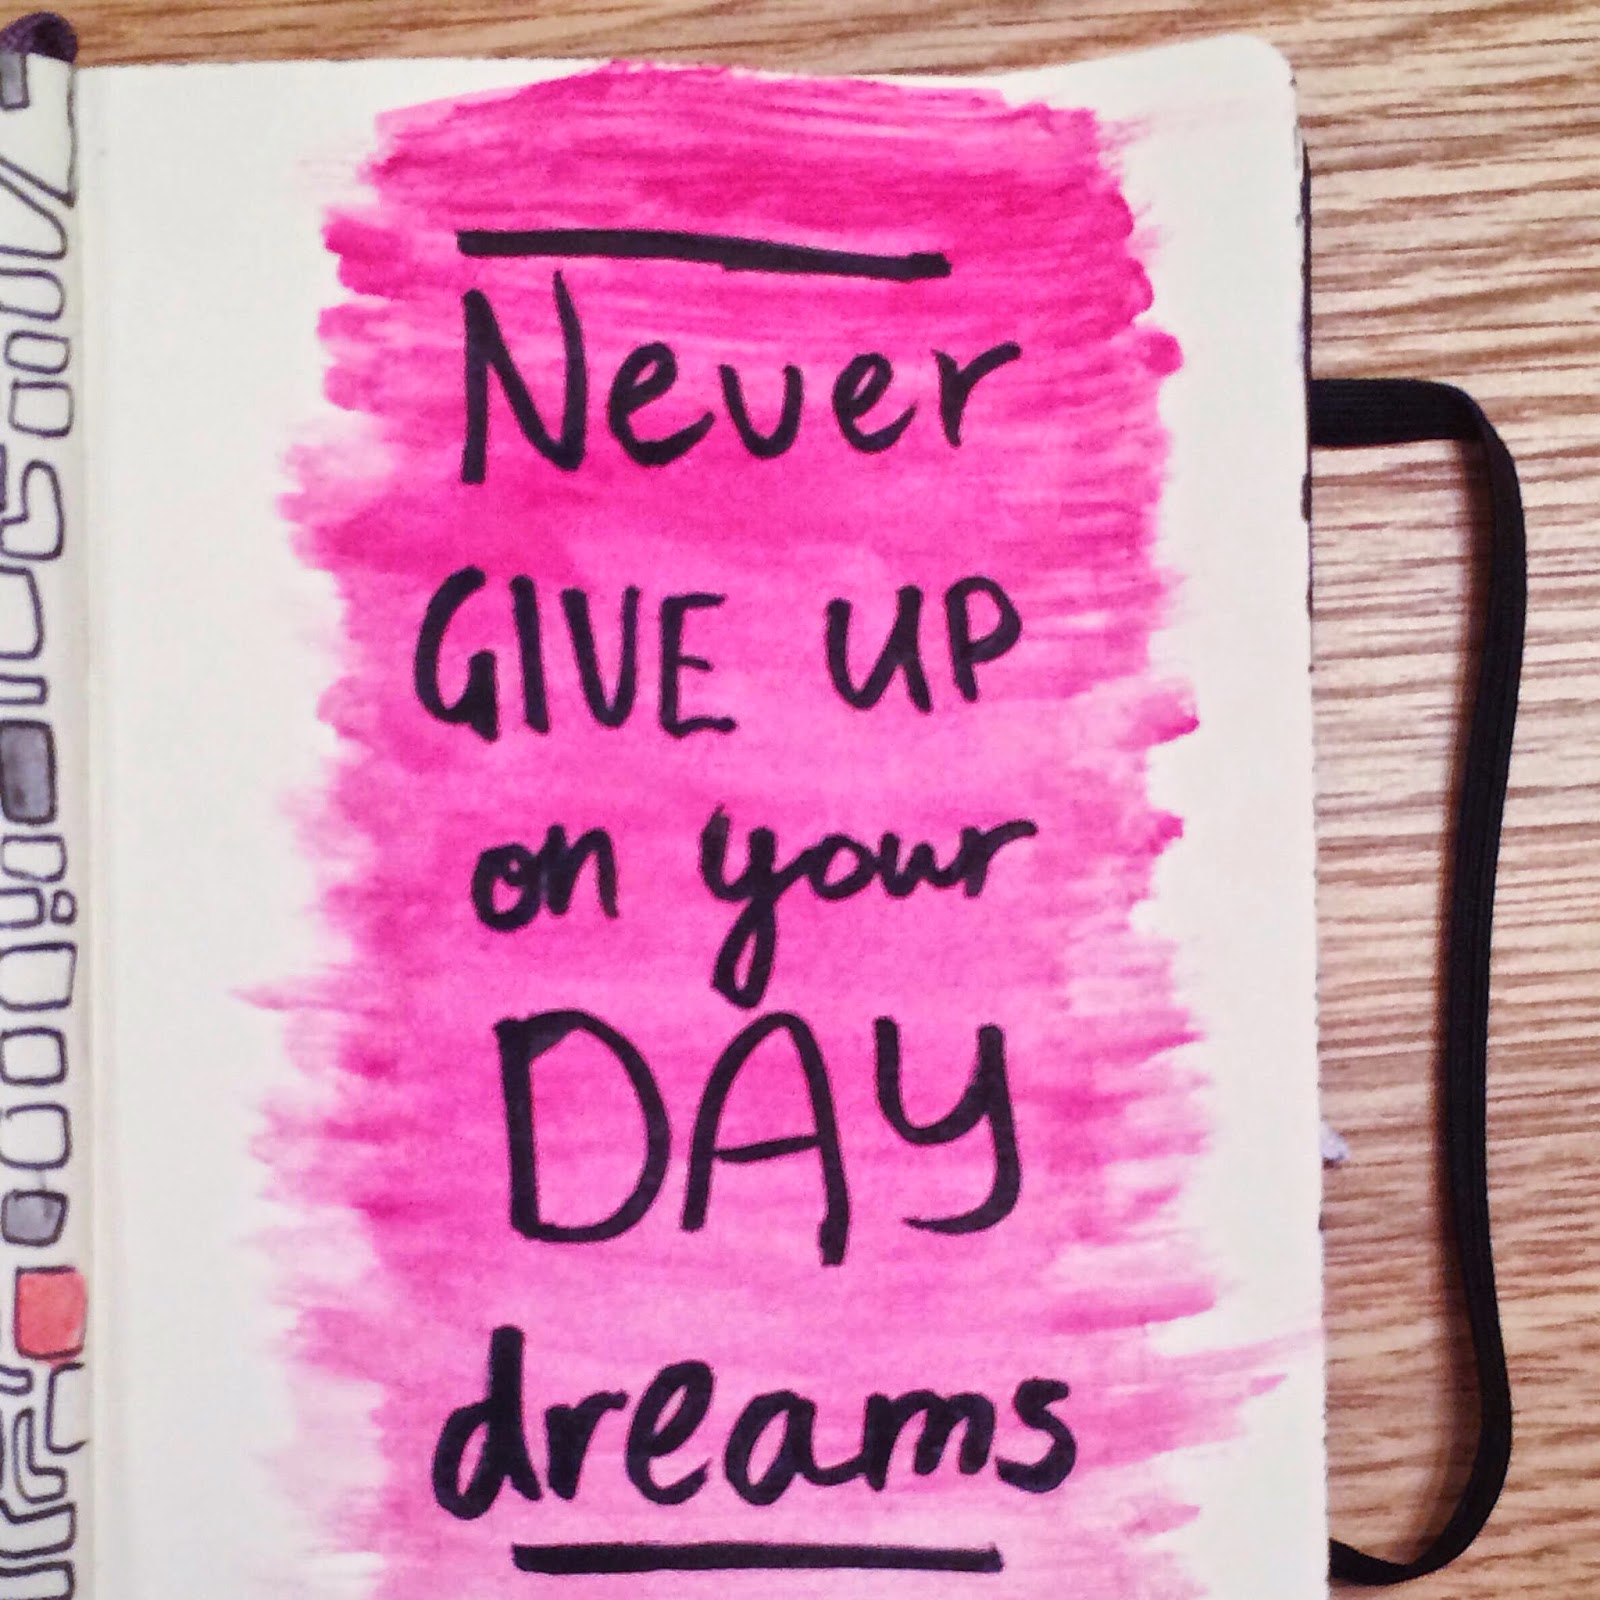 Never
GIVE UP
on your
DAY
dreams